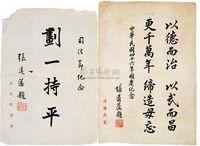 司法節紀念
劃一持平
張道藩題
以德而治 以武而昌
更千萬年 締造毋忘
中華民國四十六年國慶紀念
張道藩題